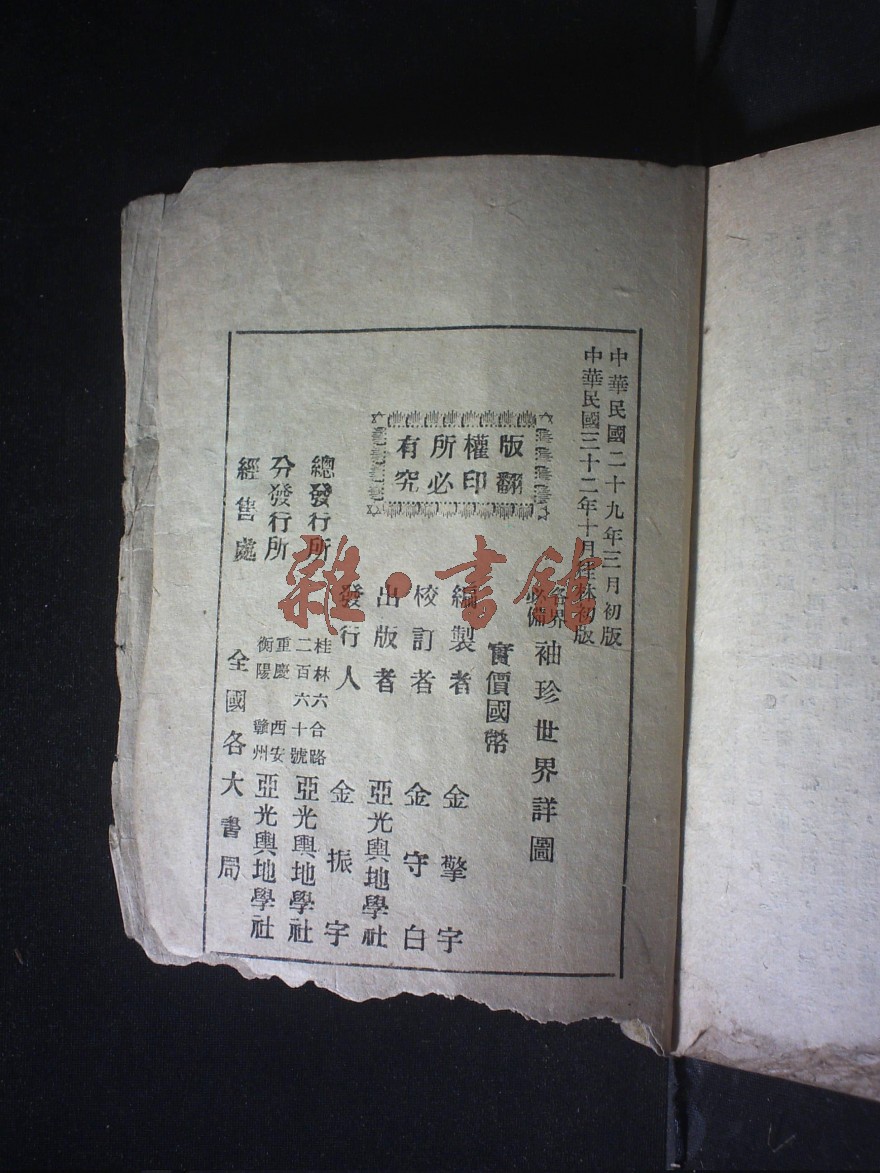 中華民國二十九年三月初版
中華民國三十二年十月桂林初版
版權所有
翻印必究
各界
必備
袖珍世界詳圖
實價國幣
編製者 金擎宇
校訂者 金守白
出版者 亞光輿地學社
發行人 金振宇
總發行所 桂林六合路二百六十號 亞光輿地學社
分發行所 重慶 西安 衡陽 贛州 亞光輿地學社
經售處 全國各大書局
雜·書館